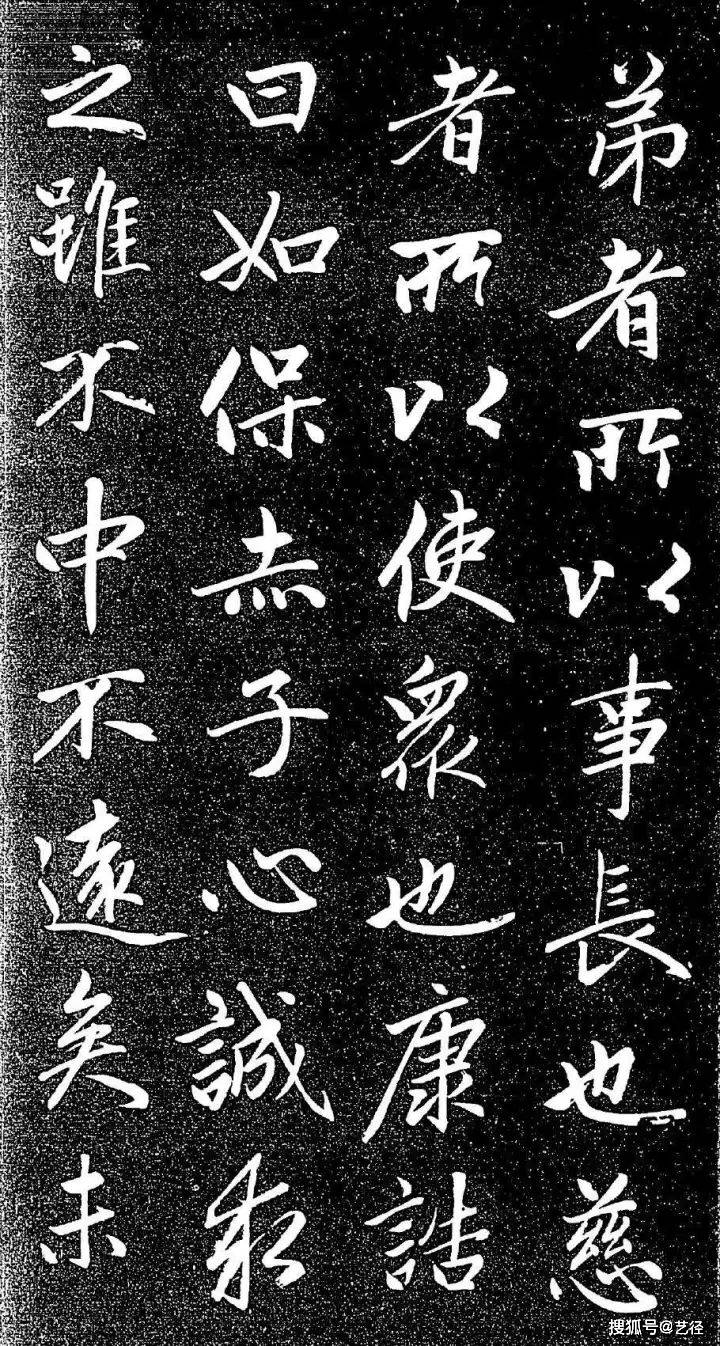 弟者所以事長也慈
者所以使眾也康誥
曰如保赤子心誠求
之雖不中不遠矣未
搜狐号@艺径